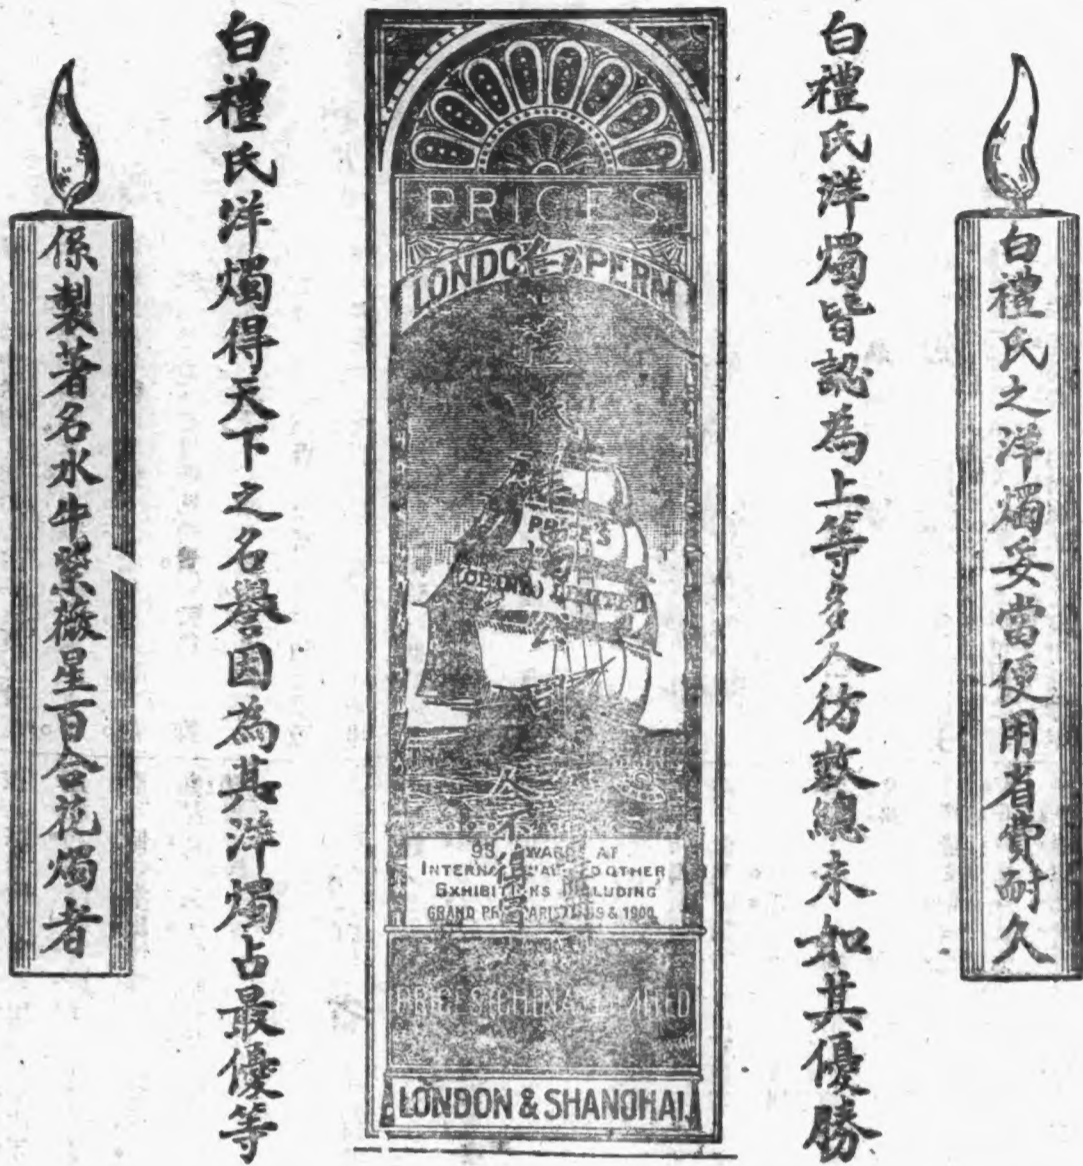 白禮氏之洋燭妥當便用省費耐久
白禮氏洋燭皆認為上等多人彷效總未如其優勝
PRICES
LONDON SPERM
PRICE'S
(CHINA) LIMITED
AWARDS AT
INTERNATIONAL AND OTHER
EXHIBITIONS INCLUDING
GRAND PRIX PARIS & 1900
PRICE'S (CHINA) LIMITED
LONDON & SHANGHAI
白禮氏洋燭得天下之名譽因為其洋燭占最優等
係製著名水牛紫薇星百合花燭者